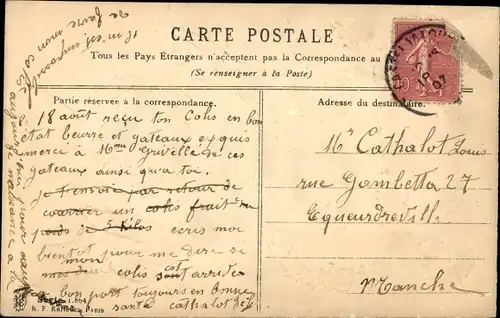 CARTE POSTALE
Tous les Pays Étrangers n'acceptent pas la Correspondance au
(Se renseigner à la Poste)
Partie réservée à la correspondance.
Adresse du destinataire.
18 août reçu ton Colis en bon
état beurre et gateaux exquis
merci à Mme Grivelle de ces
gateaux ainsi qu'a toi.
Je t'envoie par retour de
courrier un colis fruit du
poids de 5 kilos ecris moi
bientot pour me dire si
mon
mes colis est arrivés
a bon port toujours en bonne
santé cathalot
Mr Cathalot Louis
rue Gambetta 27
Equeurdrevill.
Manche
il m'est impossible
de faire mon colis
aujourd'hui
Série 1.864
PARIS
07